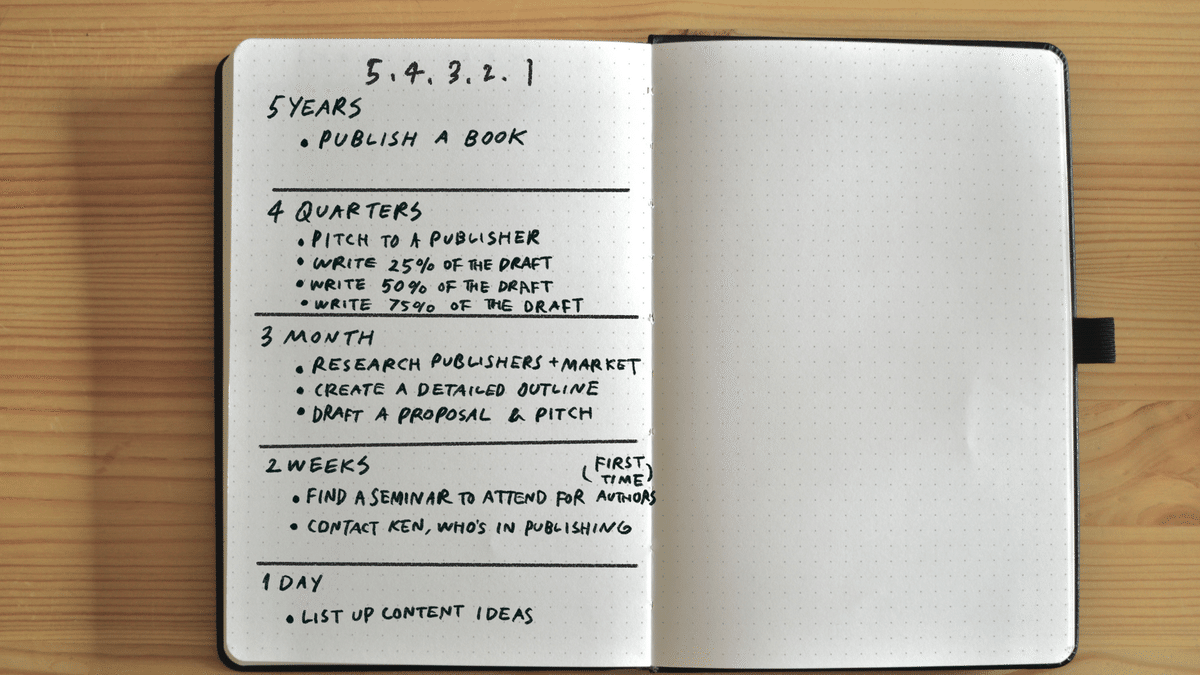 5. 4. 3. 2. 1
5 YEARS
• PUBLISH A BOOK
4 QUARTERS
• PITCH TO A PUBLISHER
• WRITE 25% OF THE DRAFT
• WRITE 50% OF THE DRAFT
• WRITE 75% OF THE DRAFT
3 MONTH
• RESEARCH PUBLISHERS + MARKET
• CREATE A DETAILED OUTLINE
• DRAFT A PROPOSAL & PITCH
2 WEEKS
(FIRST
TIME)
• FIND A SEMINAR TO ATTEND FOR AUTHORS
• CONTACT KEN, WHO'S IN PUBLISHING
1 DAY
• LIST UP CONTENT IDEAS